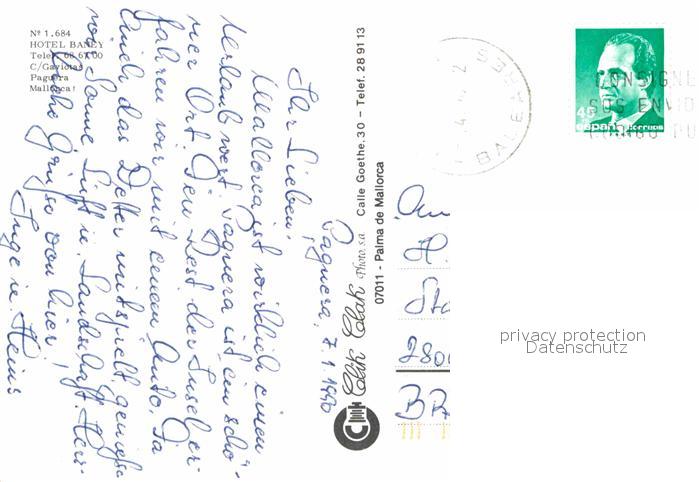 Nº 1.684
HOTEL BANEY
Telef. 68 67 00
C/Gaviotas
Paguera
Mallorca!
Paguera, 7.1.1990
Ihr Lieben,
Mallorca ist wirklich einen
Urlaub wert. Paguera ist ein schö-
ner Ort. Den Rest der Insel er-
fahren wir mit einem Auto. Da
auch das Wetter mitspielt, genießen
wir Sonne, Luft u. Landschaft. Herz-
liche Grüße von hier,
Inge u. Heinz
Clik Clak Photo, s.a. Calle Goethe, 30 – Telef. 28 91 13
07011 - Palma de Mallorca
BALEARES
45
españa correos
CONSIGNE
SUS ENVIO
An
H.
280
BR
privacy protection
Datenschutz